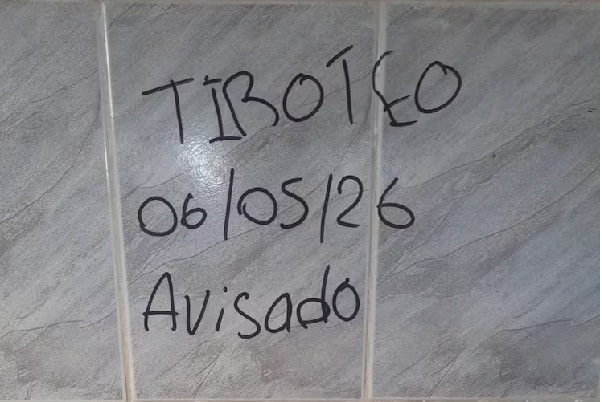 TIROTEO
06/05/26
Avisado